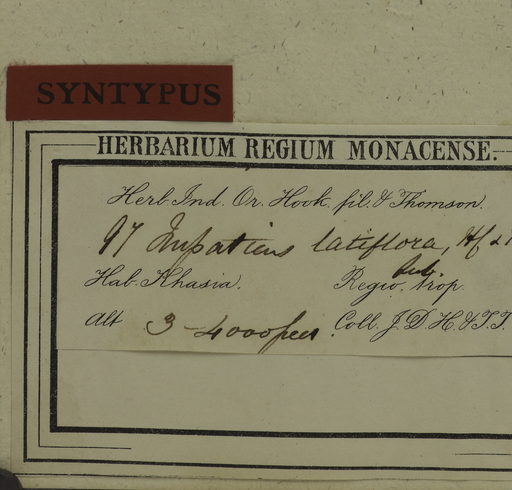 SYNTYPUS
HERBARIUM REGIUM MONACENSE.
Herb. Ind. Or. Hook. fil. & Thomson.
97 Impatiens latiflora, Hf & T
sub.
Hab. Khasia. Regio. trop.
Alt 3-4000 feet. Coll. J. D. H. & T. T.